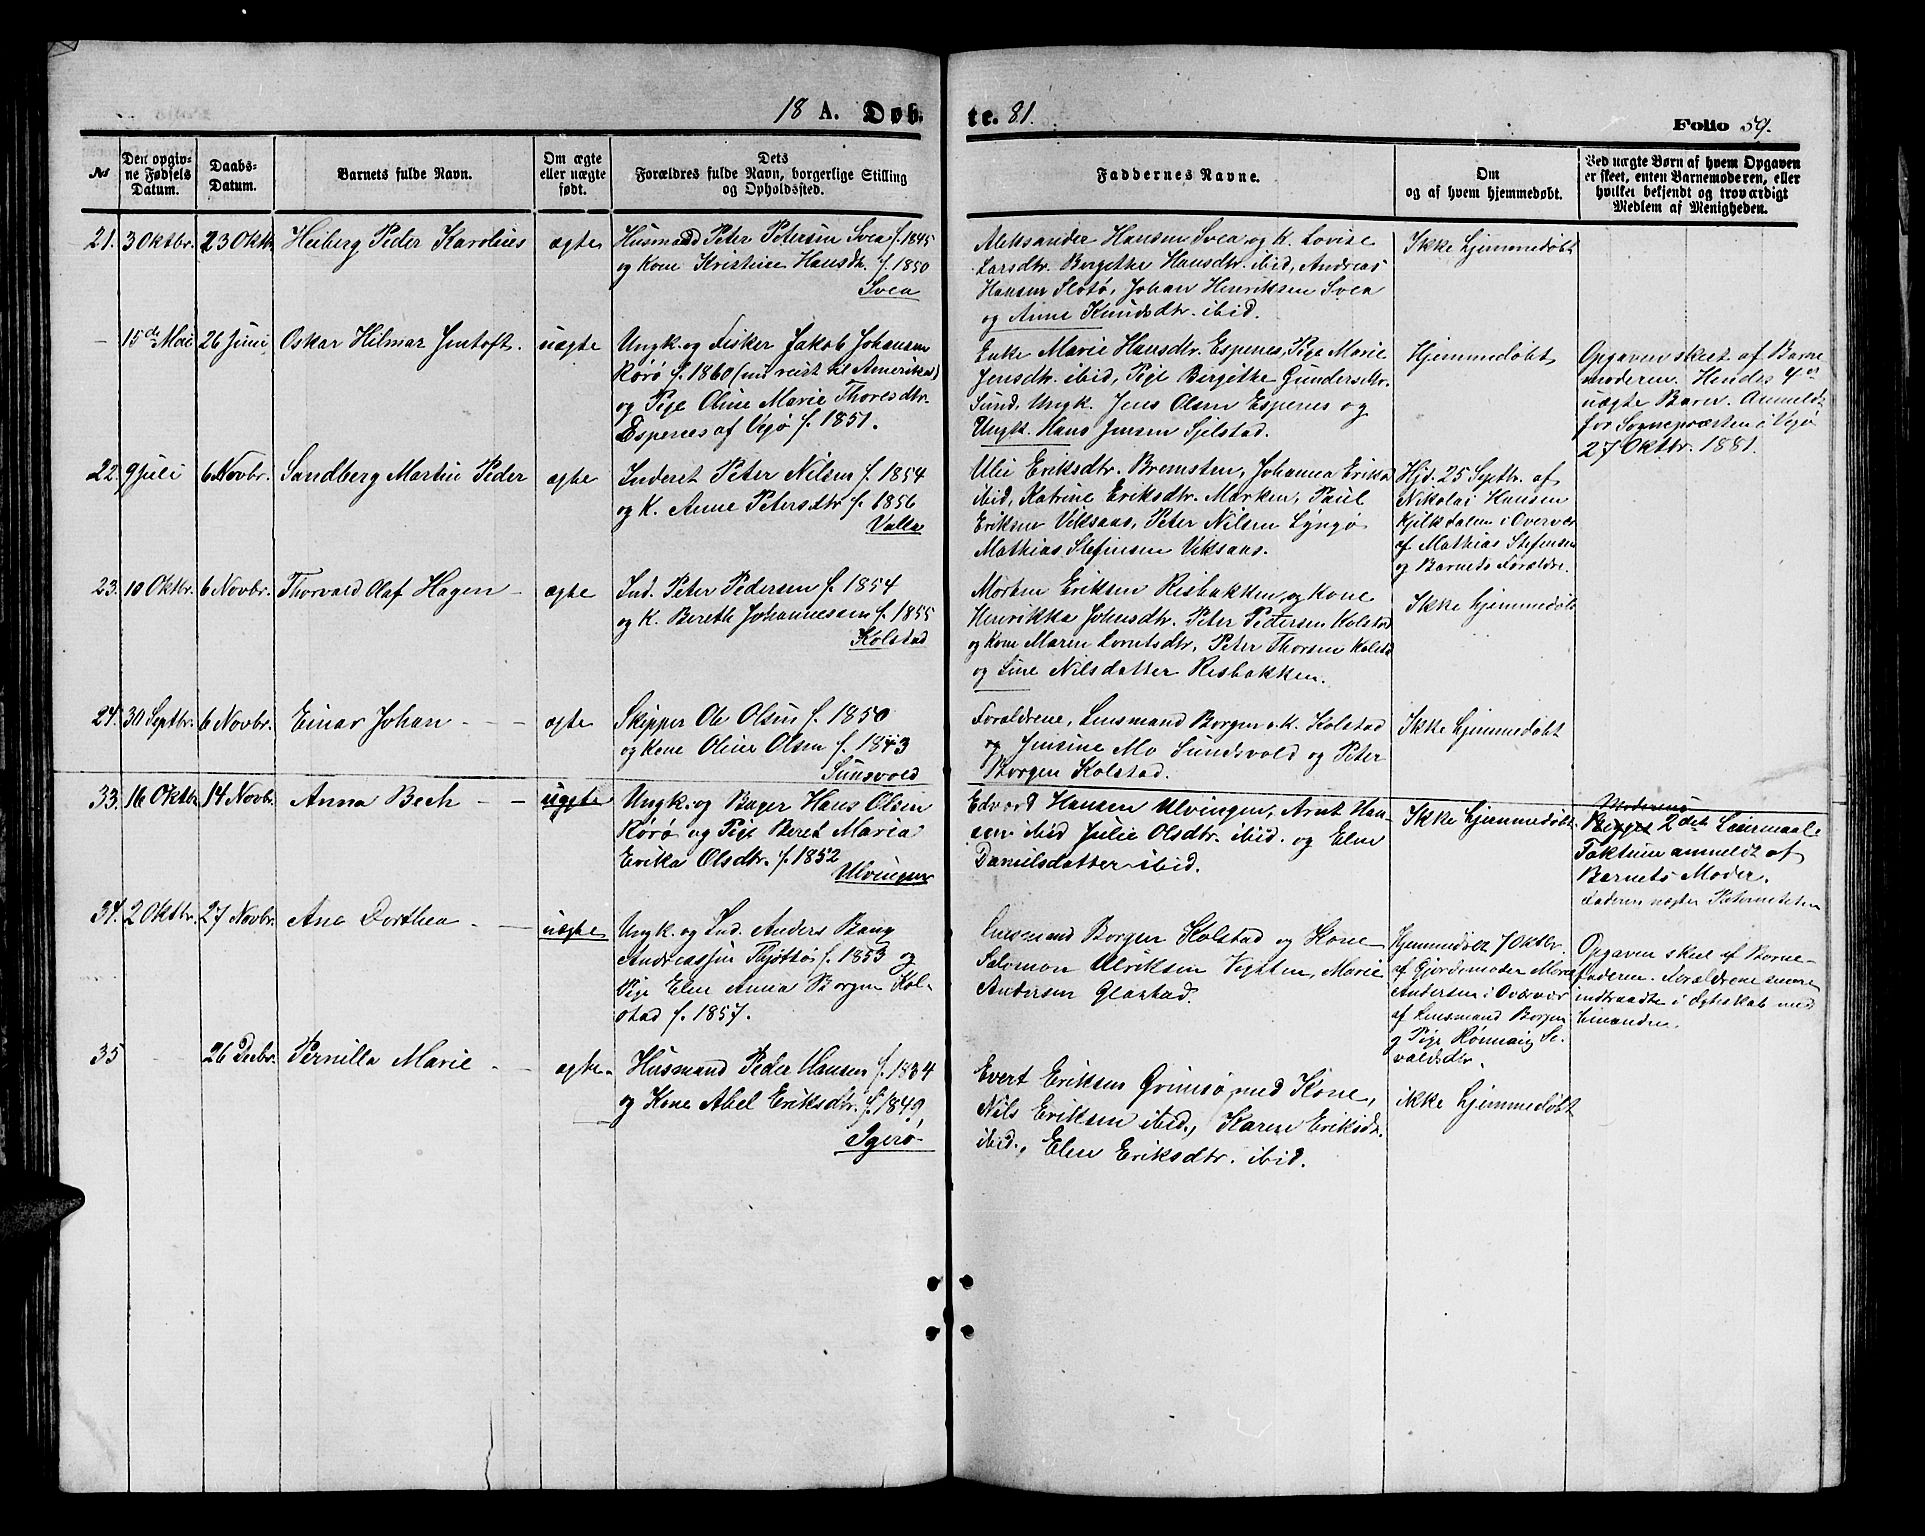 18 A. Døb-
te. 81.
Folio 59.
No
Den opgiv-
ne Fødsels
Datum.
Daabs-
Datum.
Barnets fulde Navn.
Om ægte
eller uægte
født.
Dets
Forældres fulde Navn, borgerlige Stilling
og Opholdssted.
Faddernes Navne.
Om
og af hvem hjemmedøbt.
Ved uægte Børn af hvem Opgaven
er skeet, enten Barnemoderen, eller
hvilket bekjendt og troværdigt
Medlem af Menigheden.
21. 3 Oktbr. 23 Oktb. Heiberg Peder Karolius ægte
Husmand Peter Petersen Svea f. 1845
og Kone Kristine Hansdtr. f. 1850
Svea
Aleksander Hansen Svea og K. Lovise
Larsdtr. Bergitte Hansdtr. ibid, Andreas
Hansen Slotø, Johan Henriksen Svea
og Anne Knudsdtr. ibid.
Ikke hjemmedøbt
- 15de Mai 26 Juni Oskar Hilmar Jentoft. uægte
Ungk. og Fisker Jakob Johansen
Rørø f. 1860 (nu reist til Amerika)
og Pige Oline Marie Thoresdtr.
Espenes af Vegø f. 1851.
Enke Marie Hansdtr. Espenes, Pige Marie
Jensdtr. ibid, Pige Birgithe Gundersdtr.
Sund, Ungk. Jens Olsen Espenes og
Ungk. Hans Jensen Sjelstad.
Hjemmedøbt
Opgaven skeet af Barne
moderen. Hendes 4de
uægte Barn. Anmeldt
for Sognepræsten i Vegø
27 Oktbr. 1881.
22. 9 Juli 6 Novbr. Sandberg Martin Peder ægte
Inderst Peter Nilsen f. 1854
og K. Anne Petersdtr f. 1856
Valla
Ulie Eriksdtr. Bremsten, Johanna Eriksd
ibid, Katrine Eriksdtr. Marken, Paul
Eriksen Viksaas, Peter Nilsen Lyngø
Mathias Stefensen Viksaas.
Hjd. 25 Septbr. af
Nikolai Hansen
Kjilkdalen i Overvær
af Mathias Stefensen
og Barnets Forældre.
23. 10 Oktbr. 6 Novbr. Thorvald Olaf Hagen - ægte
Ind. Peter Pedersen f. 1854
og K. Bereth Johannesen f. 1855
Kolstad
Morten Eriksen Risbakken og Kone
Henrikka Johnsdtr. Peter Pedersen Kolstad
og Kone Maren Lorntsdtr, Peter Thorsen Kolstad
og Line Nilsdatter Risbakken.
Ikke hjemmedøbt
24. 30 Septbr. 6 Novbr. Einar Johan - - - ægte
Skipper Ole Olsen f. 1850
og Kone Oline Olsen f. 1843
Sunsvold
Forældrene, Lensmand Borgen o. K. Kolstad
og Jensine Mo Sundsvold og Peter
Borgen Kolstad.
Ikke hjemmedøbt
33. 16 Oktbr 14 Novbr. Anna Bech - - uægte
Ungk. og Bager Hans Olsen
Rørø og Pige Beret Maria
Erika Olsdtr. f. 1852
Ulvingen
Edvard Hansen Ulvingen, Arnt Han-
sen ibid Julie Olsdtr. ibid. og Elen
Danielsdatter ibid.
Ikke hjemmedøbt.
Moderens
Begges 2det Leiermaal
Faktum anmeldt af
Barnets Moder.
Faderen nægter Paterniteten
34. 2 Oktbr. 27 Novbr. Ana Dorthea - - uægte
Ungk. og Ind. Anders Bang
Andreassen Thjøttø f. 1853 og
Pige Elen Anna Borgen Kol-
stad f. 1857.
Lensmand Borgen Kolstad og Kone
Salomon Ulriksen Vejsten, Marie
Andersen Glastad.
Hjemmedøbt 7 Oktbr.
af Gjordemoder Marie
Andersen i Overvær
af Lensmand Borgen
og Pige Rønnaug Se-
valdsdtr.
Opgaven skeet af Barne-
faderen. Forældrene senere
indtraadte i Egteskab med
hinanden.
35 26 Decbr. Pernilla Marie - - ægte.
Husmand Peder Hansen f. 1834
og Kone Abel Eriksdtr. f. 1849
Igerø
Evert Eriksen Grimsø med Kone,
Nils Eriksen ibid., Karen Eriksdt.
ibid., Elen Eriksdtr. ibid.
ikke hjemmedøbt